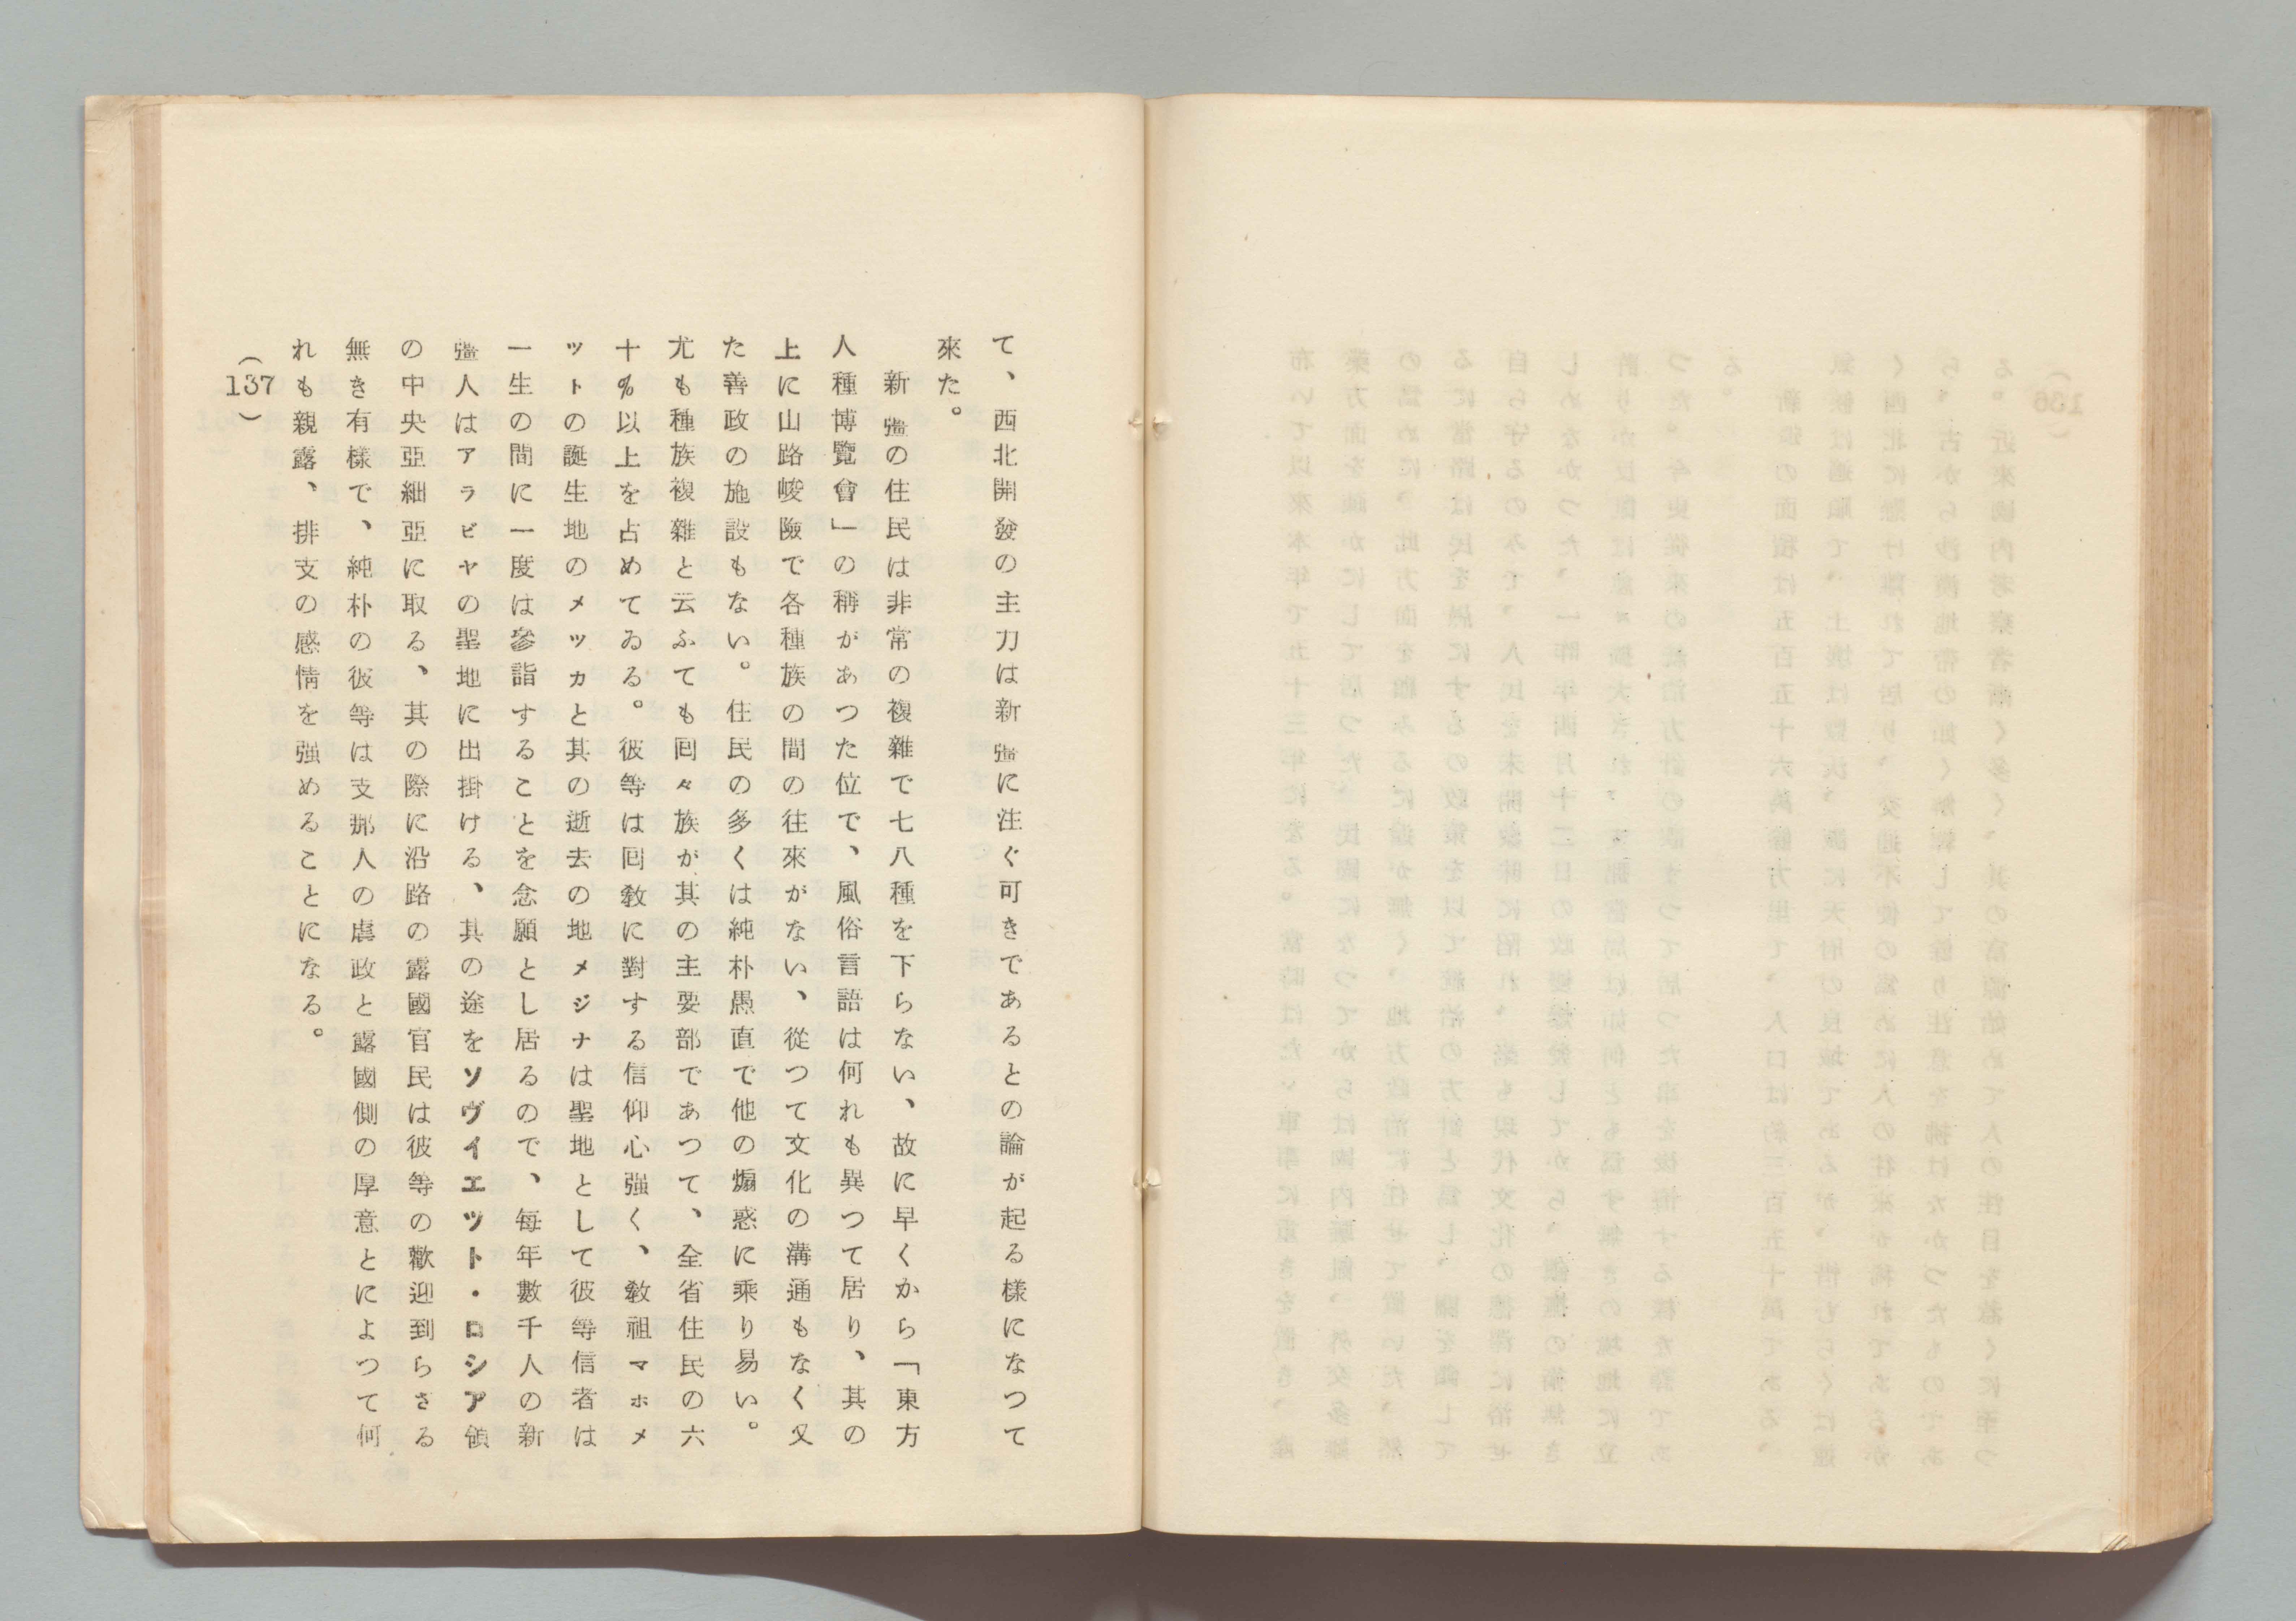 て、西北開發の主力は新疆に注ぐ可きであるとの論が起る樣になつて
來た。
新疆の住民は非常の複雜で七八種を下らない、故に早くから「東方
人種博覽會」の稱があつた位で、風俗言語は何れも異つて居り、其の
上に山路峻險で各種族の間の往來がない、從つて文化の溝通もなく又
た善政の施設もない。住民の多くは純朴愚直で他の煽惑に乘り易い。
尤も種族複雜と云ふても囘々族が其の主要部であつて、全省住民の六
十%以上を占めてゐる。彼等は囘敎に對する信仰心强く、敎祖マホメ
ツトの誕生地のメツカと其の逝去の地メジナは聖地として彼等信者は
一生の間に一度は參詣することを念願とし居るので、每年數千人の新
疆人はアラビヤの聖地に出掛ける、其の途をソヴイエツト・ロシア領
の中央亞細亞に取る、其の際に沿路の露國官民は彼等の歡迎到らさる
無き有樣で、純朴の彼等は支那人の虐政と露國側の厚意とによつて何
れも親露、排支の感情を强めることになる。
(137)